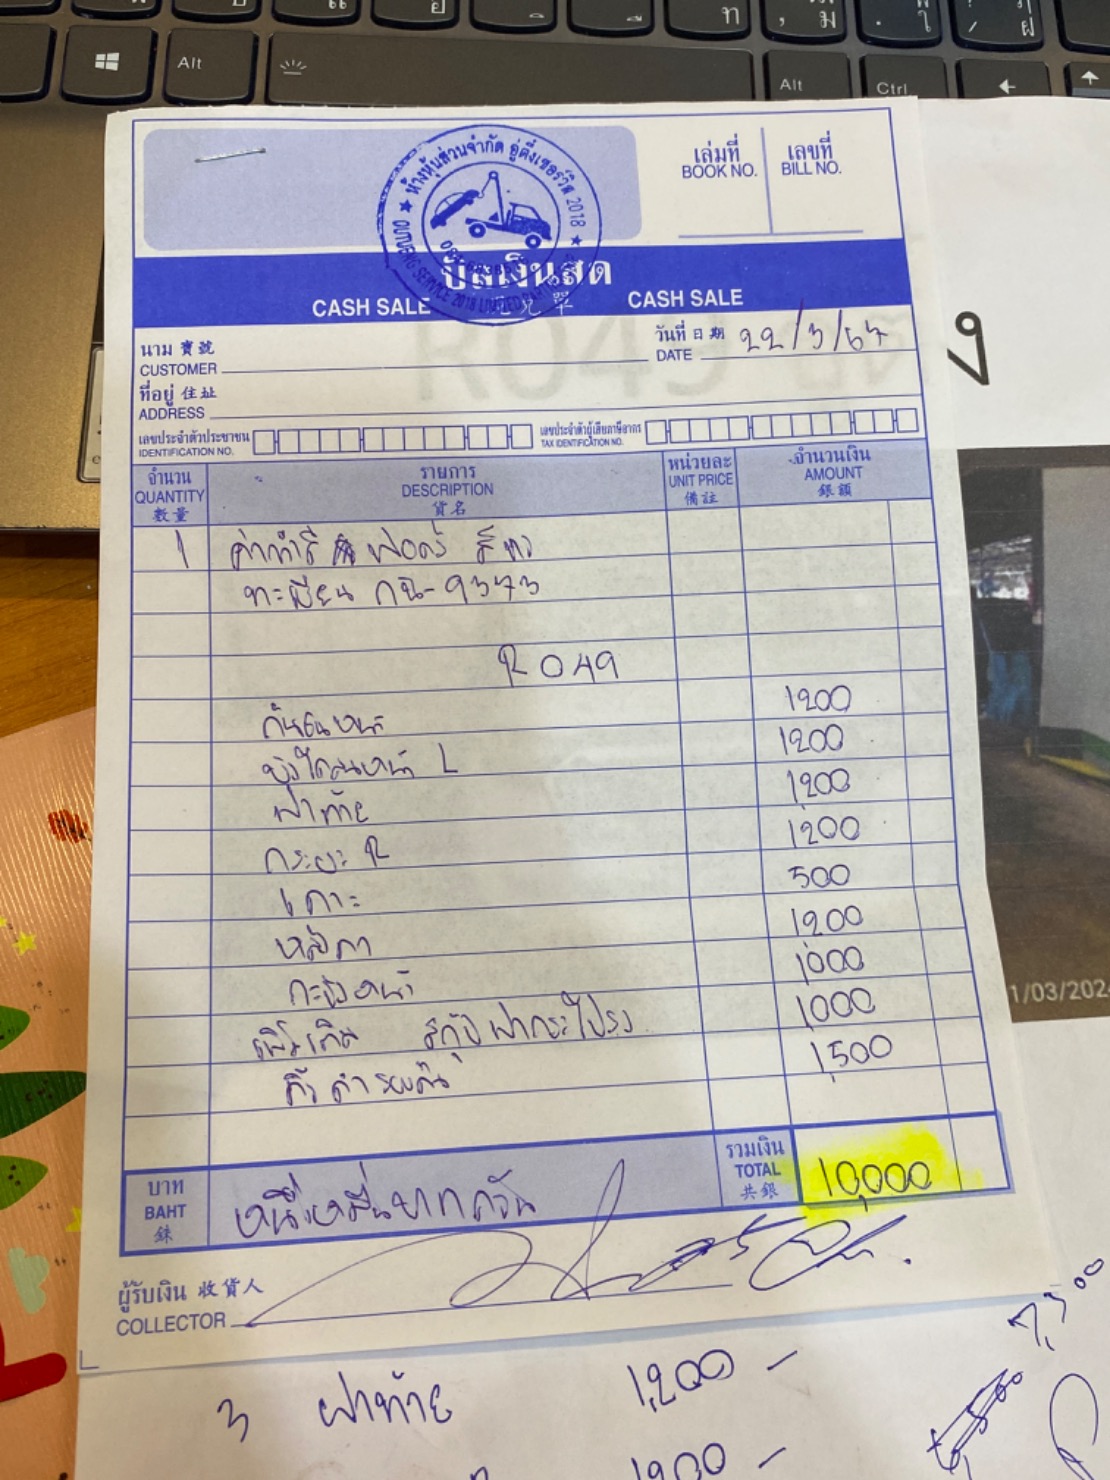 Alt
Alt
Ctrl
ห้างหุ้นส่วนจำกัด อู่ดึ๋งเซอร์วิส 2018
SERVICE 2018 LIMITED
เล่มที่ เลขที่
BOOK NO. BILL NO.
บิลเงินสด
CASH SALE 單 CASH SALE
นาม 寶號 วันที่ 日期 22/3/67
CUSTOMER DATE
ที่อยู่ 住址
ADDRESS
เลขประจำตัวประชาชน เลขประจำตัวผู้เสียภาษีอากร
IDENTIFICATION NO. TAX IDENTIFICATION NO.
จำนวน รายการ หน่วยละ จำนวนเงิน
QUANTITY DESCRIPTION UNIT PRICE AMOUNT
數量 貨名 備註 銀額
1 ค่าทำสี ฟอร์ด
ทะเบียน กฉ-9373
R049
กันชนหน้า 1200
บังโคลนหน้า L 1200
ฝาท้าย 1200
กระบะ R 1200
เคาะ 500
หลังคา 1200
กระจังหน้า 1000
1000
คิ้วดำรอบคัน 1,500
บาท หนึ่งหมื่นบาทถ้วน รวมเงิน 10,000
BAHT TOTAL
銖 共銀
ผู้รับเงิน 收貨人
COLLECTOR
1/03/2024
3 ฝาท้าย 1,200 -
1200 -